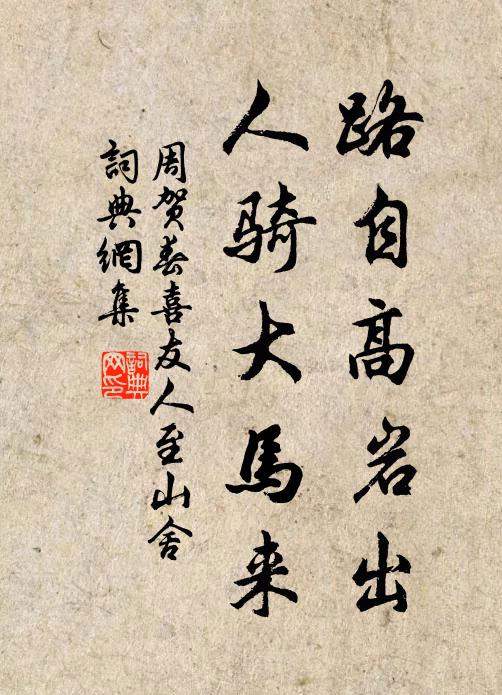 路自高岩出
人骑大馬来
周贺春喜友人至山舍
詞典網集
詞典网印